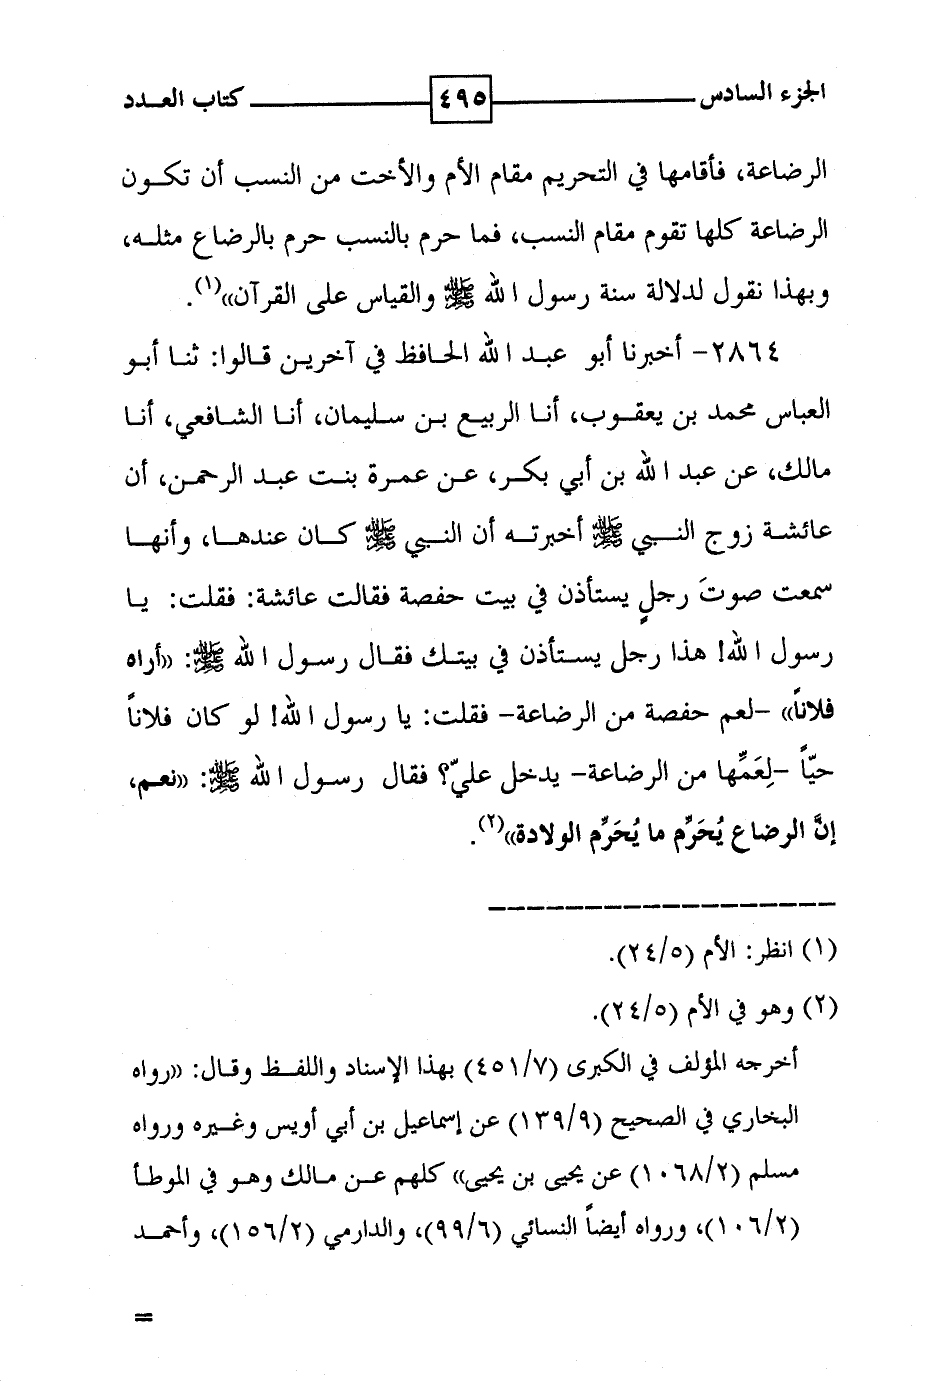 الجزء السادس ٤٩٥ كتاب العدد
الرضاعة، فأقامها في التحريم مقام الأم والأخت من النسب أن تكون
الرضاعة كلها تقوم مقام النسب، فما حرم بالنسب حرم بالرضاع مثله،
وبهذا نقول لدلالة سنة رسول الله ﷺ والقياس على القرآن»(١).
٢٨٦٤- أخبرنا أبو عبد الله الحافظ في آخرين قالوا: ثنا أبو
العباس محمد بن يعقوب، أنا الربيع بن سليمان، أنا الشافعي، أنا
مالك، عن عبد الله بن أبي بكر، عن عمرة بنت عبد الرحمن، أن
عائشة زوج النبي ﷺ أخبرته أن النبي ﷺ كان عندها، وأنها
سمعت صوتَ رجلٍ يستأذن في بيت حفصة فقالت عائشة: فقلت: يا
رسول الله! هذا رجل يستأذن في بيتك فقال رسول الله ﷺ: «أراه
فلاناً» -لعم حفصة من الرضاعة- فقلت: يا رسول الله! لو كان فلاناً
حيّاً -لِعَمِّها من الرضاعة- يدخل عليّ؟ فقال رسول الله ﷺ: «نعم،
إنَّ الرضاع يُحَرِّم ما يُحَرِّم الولادة»(٢).
(١) انظر: الأم (٢٤/٥).
(٢) وهو في الأم (٢٤/٥).
أخرجه المؤلف في الكبرى (٤٥١/٧) بهذا الإسناد واللفظ وقال: «رواه
البخاري في الصحيح (١٣٩/٩) عن إسماعيل بن أبي أويس وغيره ورواه
مسلم (١٠٦٨/٢) عن يحيى بن يحيى» كلهم عن مالك وهو في الموطأ
(١٠٦/٢)، ورواه أيضاً النسائي (٩٩/٦)، والدارمي (١٥٦/٢)، وأحمد
=